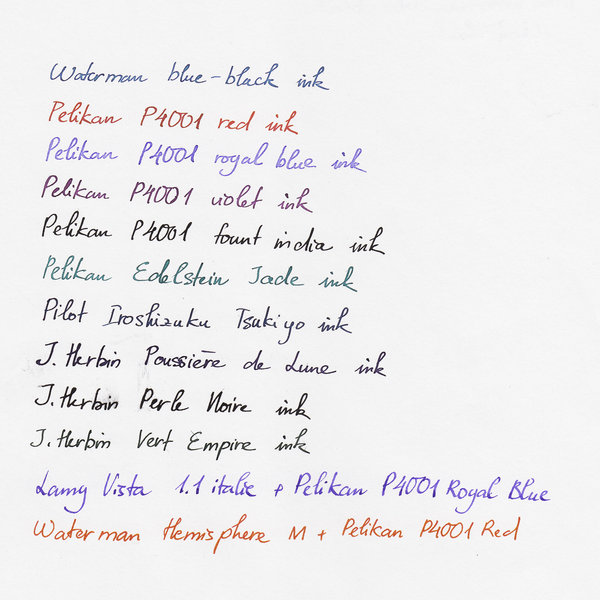 Waterman blue-black ink
Pelikan P4001 red ink
Pelikan P4001 royal blue ink
Pelikan P4001 violet ink
Pelikan P4001 fount india ink
Pelikan Edelstein Jade ink
Pilot Iroshizuku Tsukiyo ink
J. Herbin Poussière de Lune ink
J. Herbin Perle Noire ink
J. Herbin Vert Empire ink
Lamy Vista 1.1 italic + Pelikan P4001 Royal Blue
Waterman Hemisphere M + Pelikan P4001 Red